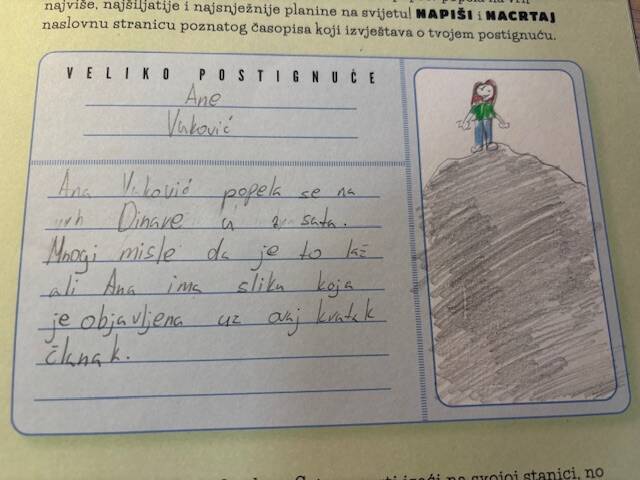 najviše, najšiljatije i najsnježnije planine na svijetu! NAPIŠI i NACRTAJ
naslovnu stranicu poznatog časopisa koji izvještava o tvojem postignuću.
VELIKO POSTIGNUĆE
Ane
Vuković
Ana Vuković popela se na
vrh Dinare u sata.
Mnogi misle da je to laž
ali Ana ima sliku koja
je objavljena uz ovaj kratak
članak.
izaći na svojoj stanici, no